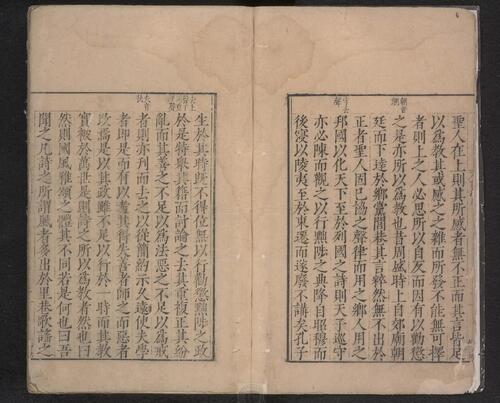 朝音潮
守去聲
聖人在上則其所感者無不正而其言皆足
以為教其或感之之雜而所發不能無可擇
者則上之人必思所以自反而因有以勸懲
之是亦所以為教也昔周盛時上自郊廟朝
廷而下達於鄉黨閭巷其言粹然無不出於
正者聖人固已協之聲律而用之鄉人用之
邦國以化天下至於列國之詩則天子巡守
亦必陳而觀之以行黜陟之典降自昭穆而
後寖以陵夷至於東遷而遂廢不講矣孔子
夫音扶
生於其時既不得位無以行勸懲黜陟之政
於是特舉其籍而討論之去其重複正其紛
亂而其善之不足以為法惡之不足以為戒
者則亦刊而去之以從簡約示久遠使夫學
者即是而有以考其得失善者師之而惡者
改焉是以其政雖不足以行於一時而其教
實被於萬世是則詩之所以為教者然也曰
然則國風雅頌之體其不同若是何也曰吾
聞之凡詩之所謂風者多出於里巷歌謠之